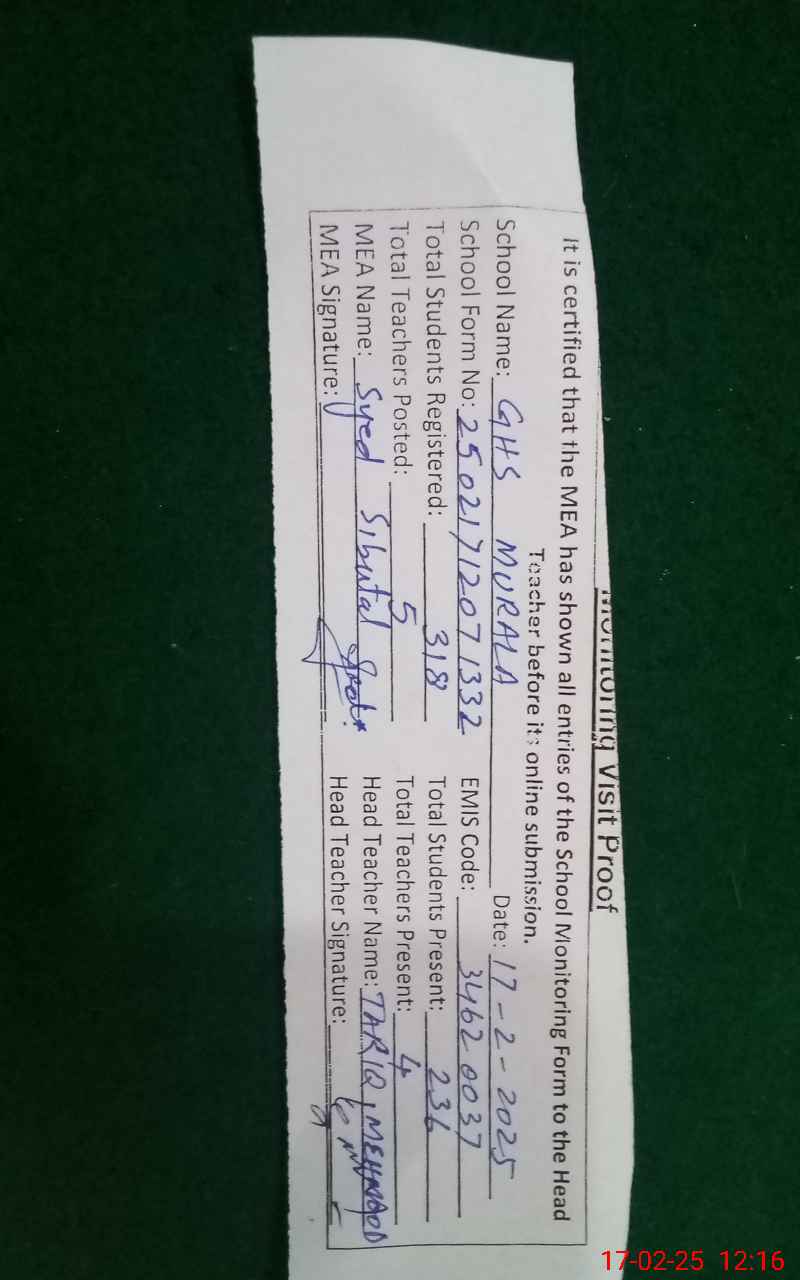 Monitoring Visit Proof
It is certified that the MEA has shown all entries of the School Monitoring Form to the Head
Teacher before its online submission.
School Name: GHS MURALA Date: 17-2-2025
School Form No: 25021712071332 EMIS Code: 34620037
Total Students Registered: 318 Total Students Present: 236
Total Teachers Posted: 5 Total Teachers Present: 4
MEA Name: Syed Head Teacher Name: TARIQ MEHMOOD
MEA Signature: Head Teacher Signature:
17-02-25 12:16